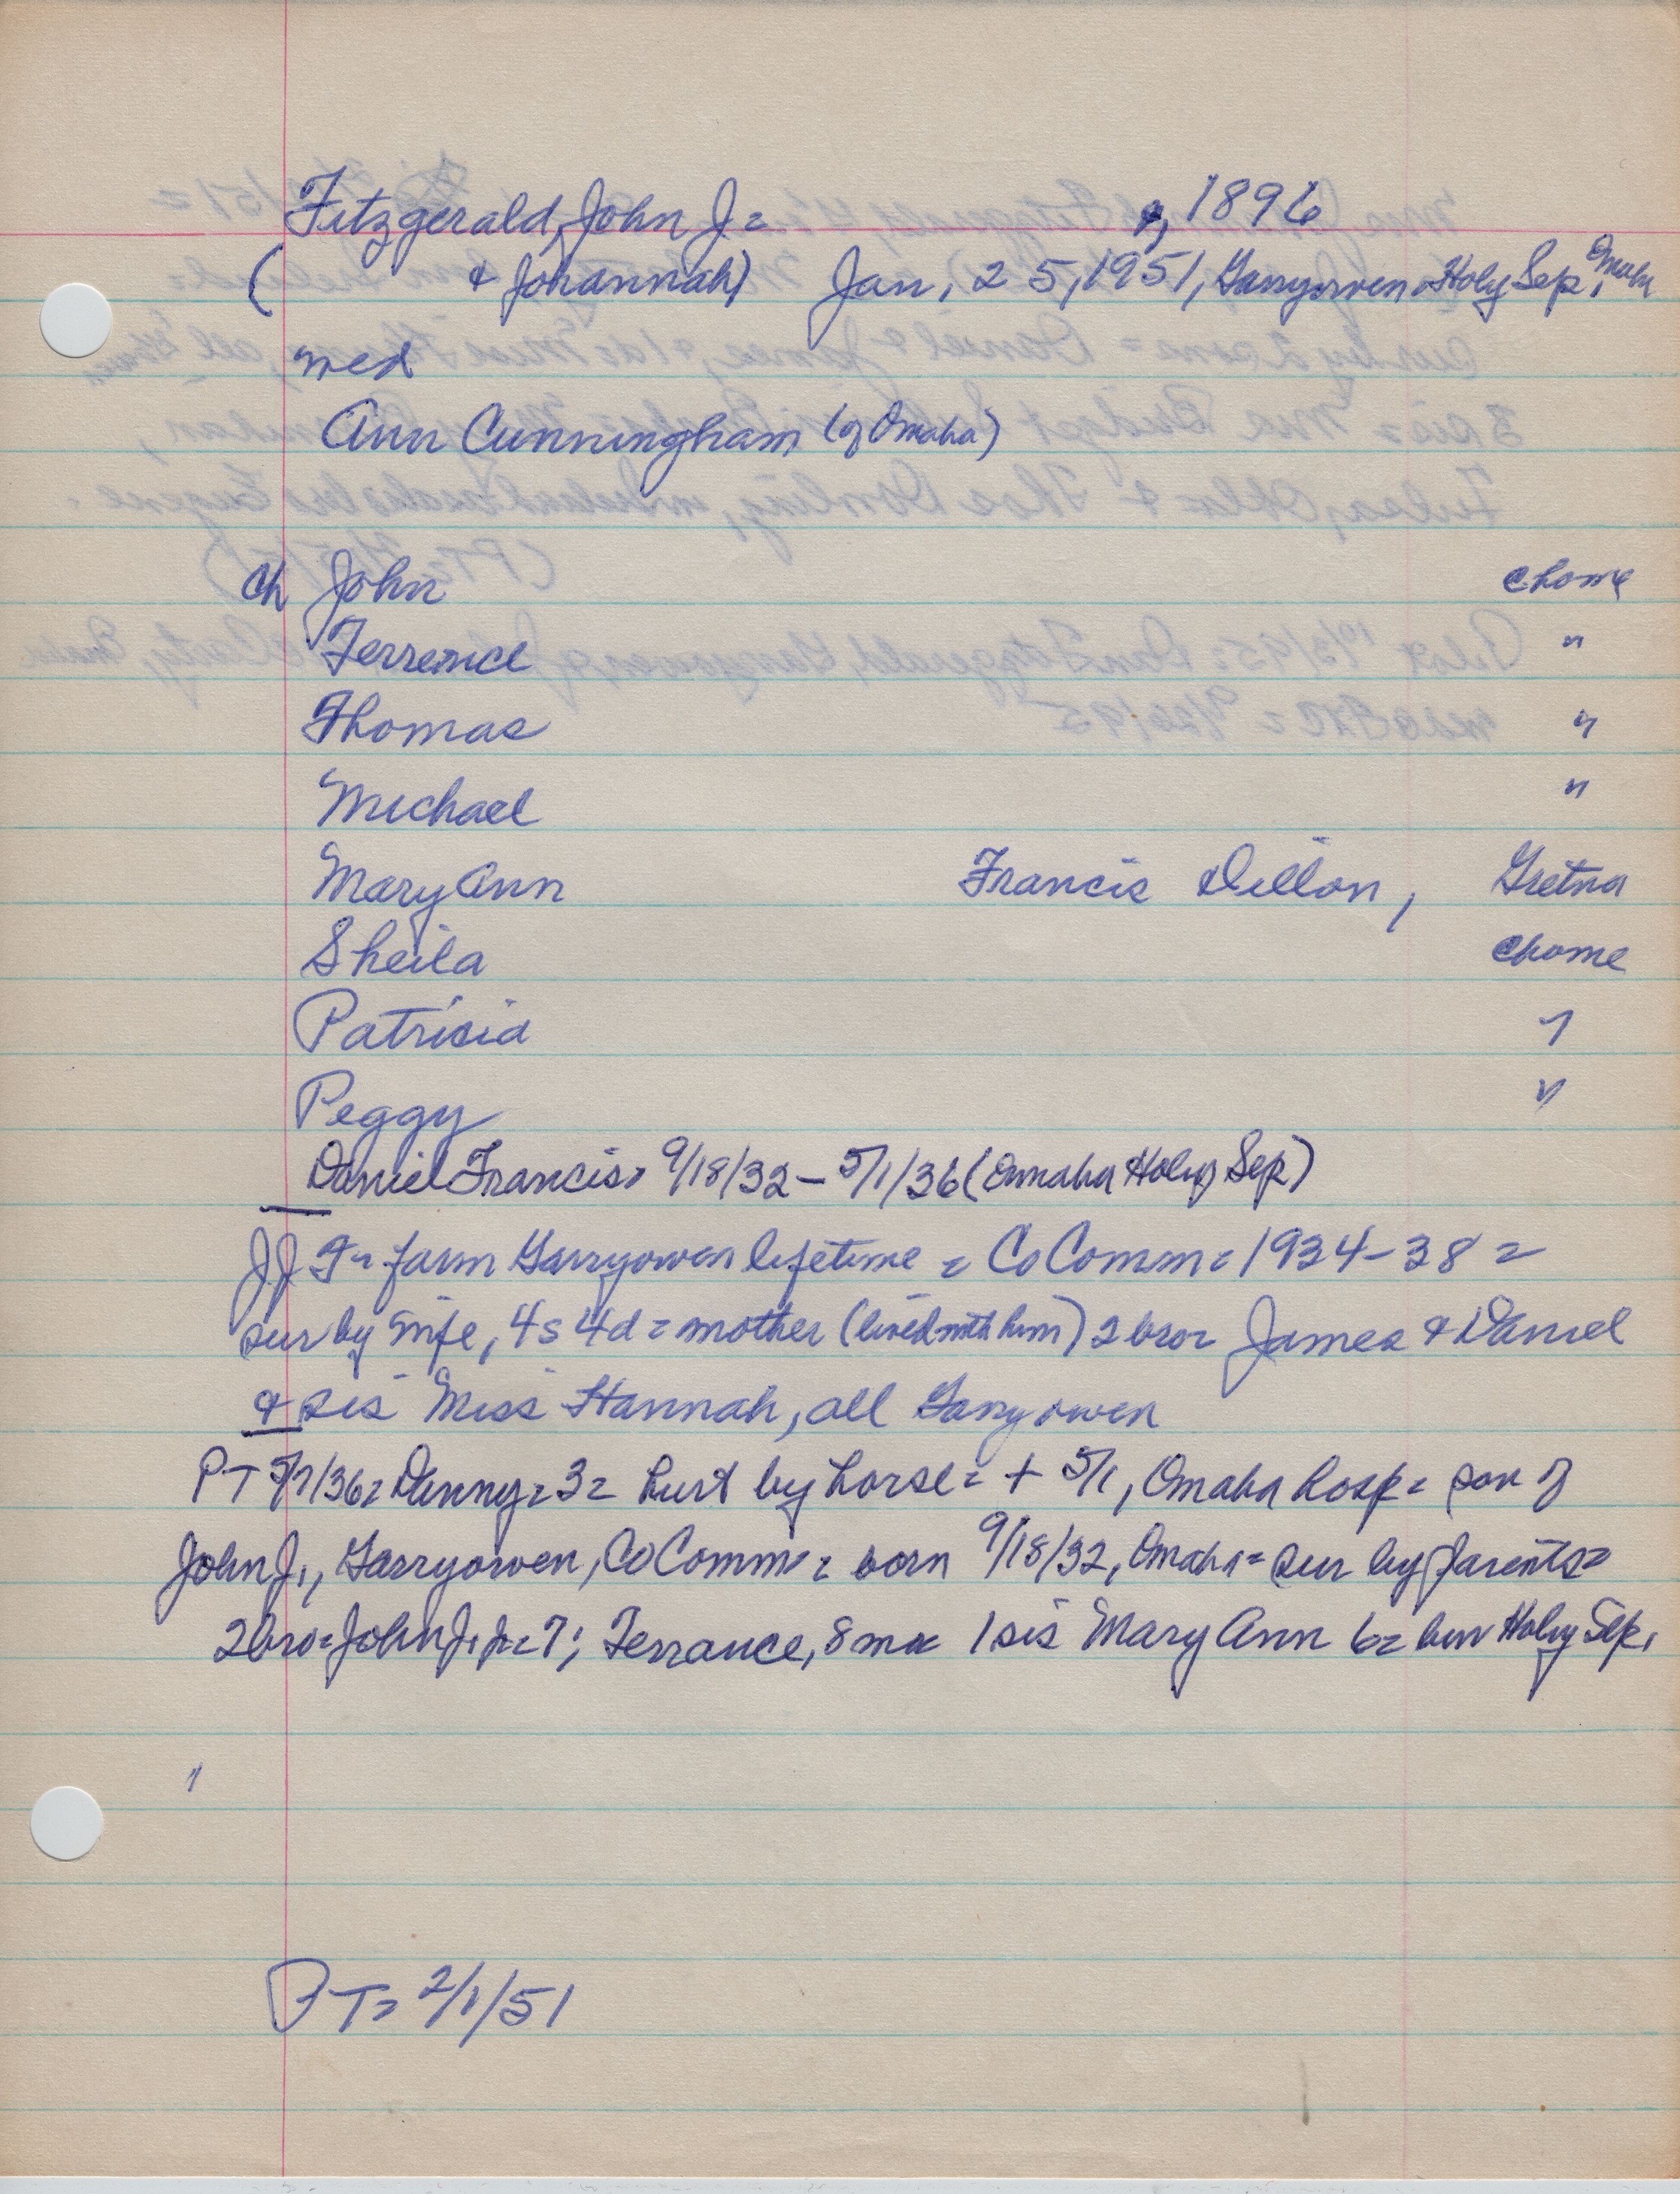 Fitzgerald, John J = , 1896
( & Johannah) Jan, 25, 1951, Garryowen Holy Sep, Omaha
med
Ann Cunningham (of Omaha)
ch John @home
Terrence "
Thomas "
Michael "
Mary Ann Francis Dillon, Gretna
Sheila @home
Patricia "
Peggy "
Daniel Francis = 9/18/32 – 5/1/36 (Omaha Holy Sep)
JJ F = farm Garryowen lifetime = Co Comm = 1934-38 =
sur by wife, 4s 4d = mother (lived with him) 2 bro = James & Daniel
& sis Miss Hannah, all Garryowen
PT 5/7/36 = Danny = 3 = hurt by horse = + 5/1, Omaha hosp = son of
John J., Garryowen, Co Comm = born 9/18/32, Omaha = sur by parents =
2 bro = John J, jr = 7; Terrance, 8 mo = 1 sis Mary Ann 6 = bur Holy Sep,
PT = 2/1/51